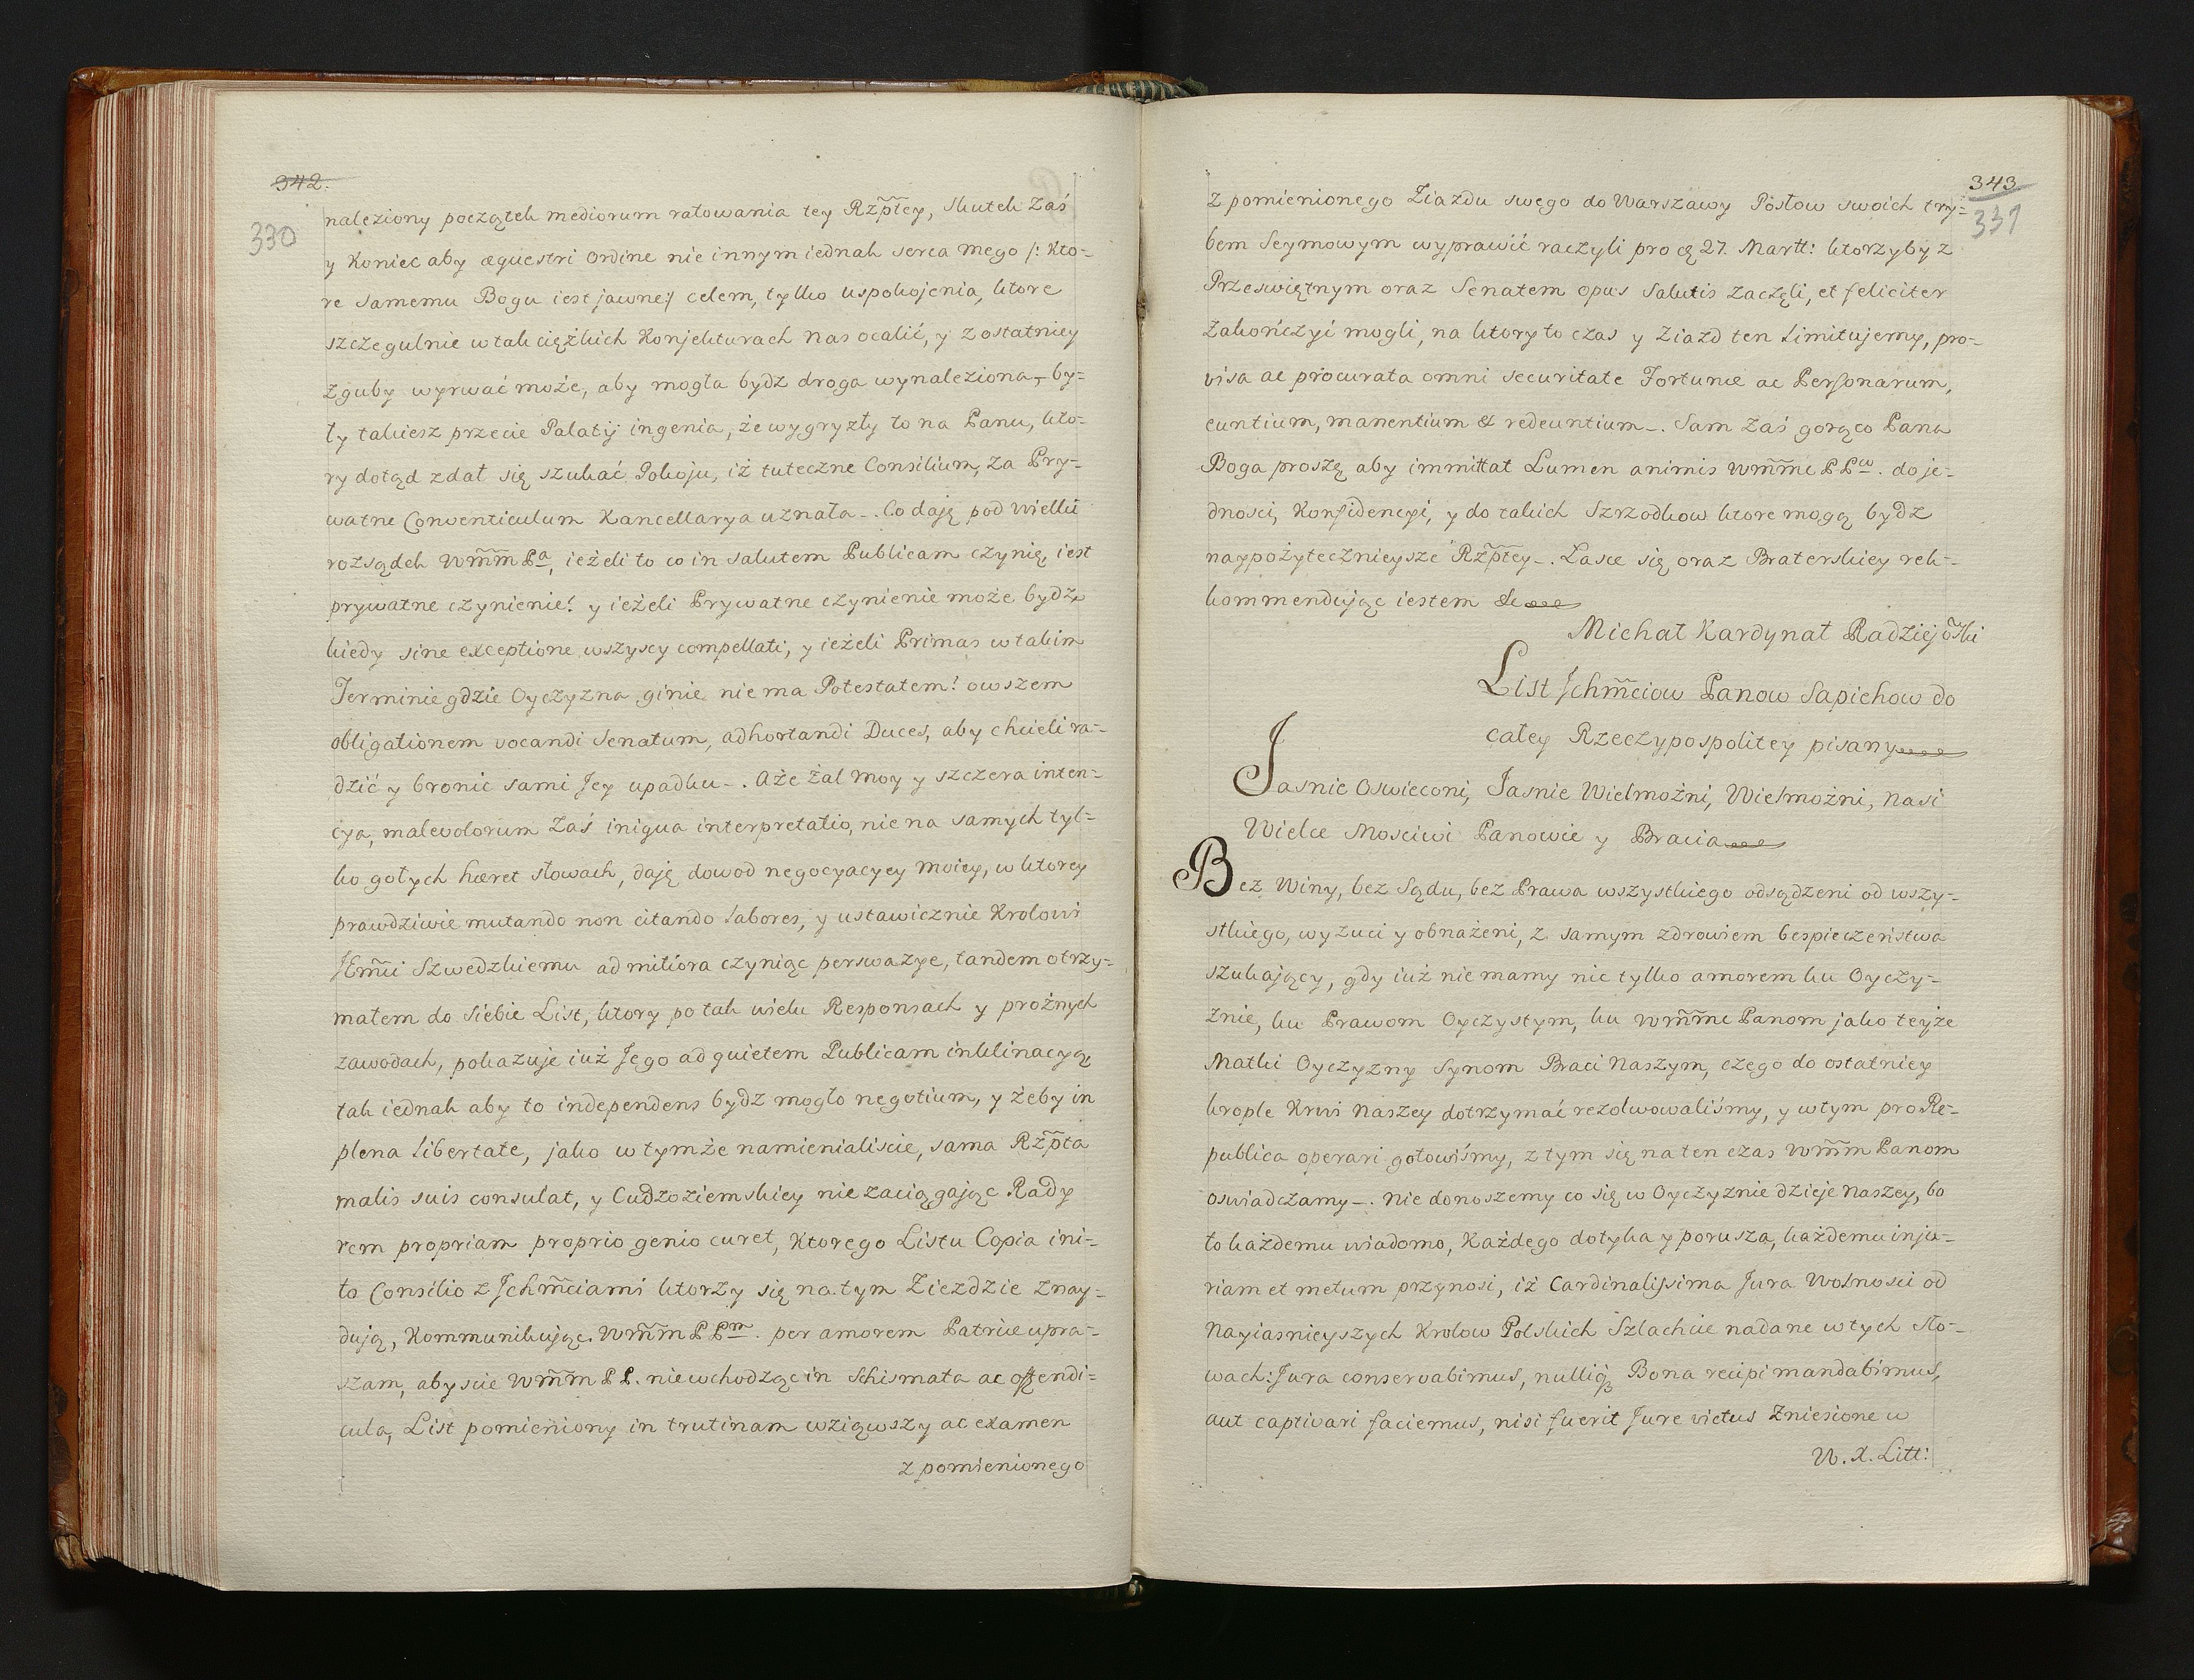 342.
330
naleziony początek mediorum ratowania tey Rzp̃tey, skutek Zaś
y Koniec aby æquestri Ordine nie innym iednak serca mego /: Kto-
re Samemu Bogu iest jawne:/ celem, tylko uspokojenia, ktore
szczegulnie w tak ciężkich Konjekturach nas ocalić, y z ostatniey
zguby wyrwać może, aby mogła bydz droga wynaleziona, by-
ły takiesz przecie Palatij ingenia, że wygryzły to na Panu, kto-
ry dotąd zdał się szukać Pokoju, iż tuteczne Consilium, za Pry-
watne Conventiculum Kancellarya uznała _. Co daję pod wielki
rozsądek Wm̃m̃ Pa, ieżeli to co in Salutem Publicam czynię iest
prywatne czynienie! y ieżeli Prywatne czynienie może bydz,
kiedy sine exceptione wszyscy compellati, y ieżeli Primas w takim
Terminie gdzie Oyczyzna ginie nie ma Potestatem! owszem
obligationem vocandi Senatum, adhortandi Duces, aby chcieli ra-
dzić y bronic sami Jey upadku _. Aże żal moy y szczera inten-
cya, malevolorum Zaś iniqua interpretatio, nie na samych tyl-
ko gołych hæret słowach, daję dowod negocyacyey moiey, w ktorey
prawdziwie mutando non citando labores, y ustawicznie Krolowi
JEm̃i Szwedzkiemu ad mitiora czyniąc perswazye, tandem otrzy-
małem do Siebie List, ktory po tak wielu Responsach y prożnych
zawodach, pokazuje iuż Jego ad quietem Publicam inklinacyą
tak iednak aby to independens bydz mogło negotium, y żeby in
plena libertate, jako w tymże namienialiscie, sama Rzp̃ta
malis suis consulat, y Cudzoziemskiey nie zaciągając Rady
rem propriam proprio genio curet, Ktorego Listu Copia ini-
to Consilio z Jchm̃ciami ktorzy się na tym Zieździe znay-
dują, Kommunikując. Wm̃m P Pm. per amorem Patriæ upra-
szam, abyscie Wm̃m P P. nie wchodząc in Schismata ac offendi-
cula, List pomieniony in trutinam wziąwszy ac examen
z pomienionego
343
331
z pomienionego Ziazdu swego do Warszawy Posłow swoich try-
bem Seymowym wyprawić raczyli pro cą 27. Martt: ktorzyby z
Przeswiętnym oraz Senatem opus Salutis zaczęli, et feliciter
zakończyć mogli, na ktory to czas y Ziazd ten limitujemy, pro-
visa ac procurata omni securitate Fortunæ ac Personarum,
euntium, manentium & redeuntium _. Sam Zaś gorąco Pana
Boga proszę aby immittat Lumen animis Wm̃m̃c P Pw. do je-
dnosci, Konfidencyi, y do takich Szrzodkow ktore mogą bydz
naypożytecznieysze Rzp̃tey _. Łasce się oraz Braterskiey rek-
kommendując iestem &c
Michał Kardynał Radziejõski
List Jchm̃ciow Panow Sapiehow do
całey Rzeczypospolitey pisany
Jasnie Oswieconi, Jasnie Wielmożni, Wielmożni, Nasi
Wielce Mosciwi Panowie y Bracia
Bez Winy, bez Sądu, bez Prawa wszystkiego odsądzeni od wszy-
stkiego, wyzuci y obnażeni, z samym zdrowiem bespieczeństwa
szukający, gdy iuż nie mamy nic tylko amorem ku Oyczy-
znie, ku Prawom Oyczystym, ku Wm̃m̃c Panom jako teyże
Matki Oyczyzny Synom Braci Naszym, czego do ostatniey
krople Krwi Naszey dotrzymać rezolwowaliśmy, y w tym pro Re-
publica operari gotowiśmy, z tym się na ten czas Wm̃m̃ Panom
oswiadczamy _. Nie donoszemy co się w Oyczyznie dzieje Naszey, bo
to każdemu wiadomo, Każdego dotyka y porusza, każdemu inju-
riam et metum przynosi, iż Cardinalissima Jura Wolnosci od
Nayiasnieyszych Krolow Polskich Szlachcie nadane w tych sło-
wach: Jura conservabimus, nulliq Bona recipi mandabimus,
aut captivari faciemus, nisi fuerit Jure victus Zniesione w
W. X. Litt: